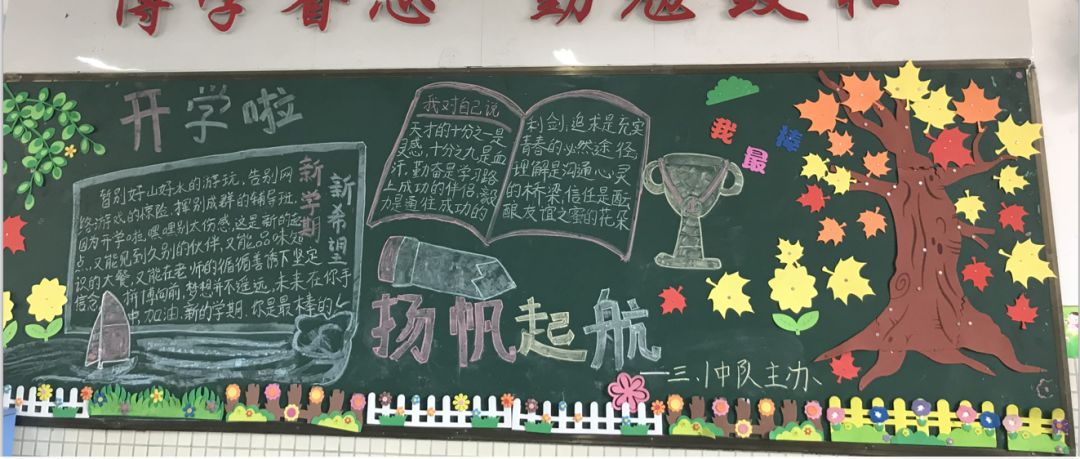 博学睿思 勤勉致和
开学啦
新学期
新希望
暂别好山好水的游玩,告别网
路游戏的惊险.挥别成群的辅导班,
因为开学啦,嘿嘿别太伤感,这是新的起
点,又能见到久别的伙伴,又能品味知
识的大餐,又能在老师的循循善诱下坚定
信念. 拼博向前,梦想并不遥远,未来在你手
中,加油.新的学期.你是最棒的
我对自己说
天才的十分之一是
灵感,十分之九是血
汗,勤奋是学习路
上成功的伴侣,毅
力是通往成功的
利剑,追求是充实
青春的必然途径
理解是沟通心灵
的桥梁,信任是酝
酿友谊之蜜的花朵
我最棒
扬帆起航
—三.1中队主办.